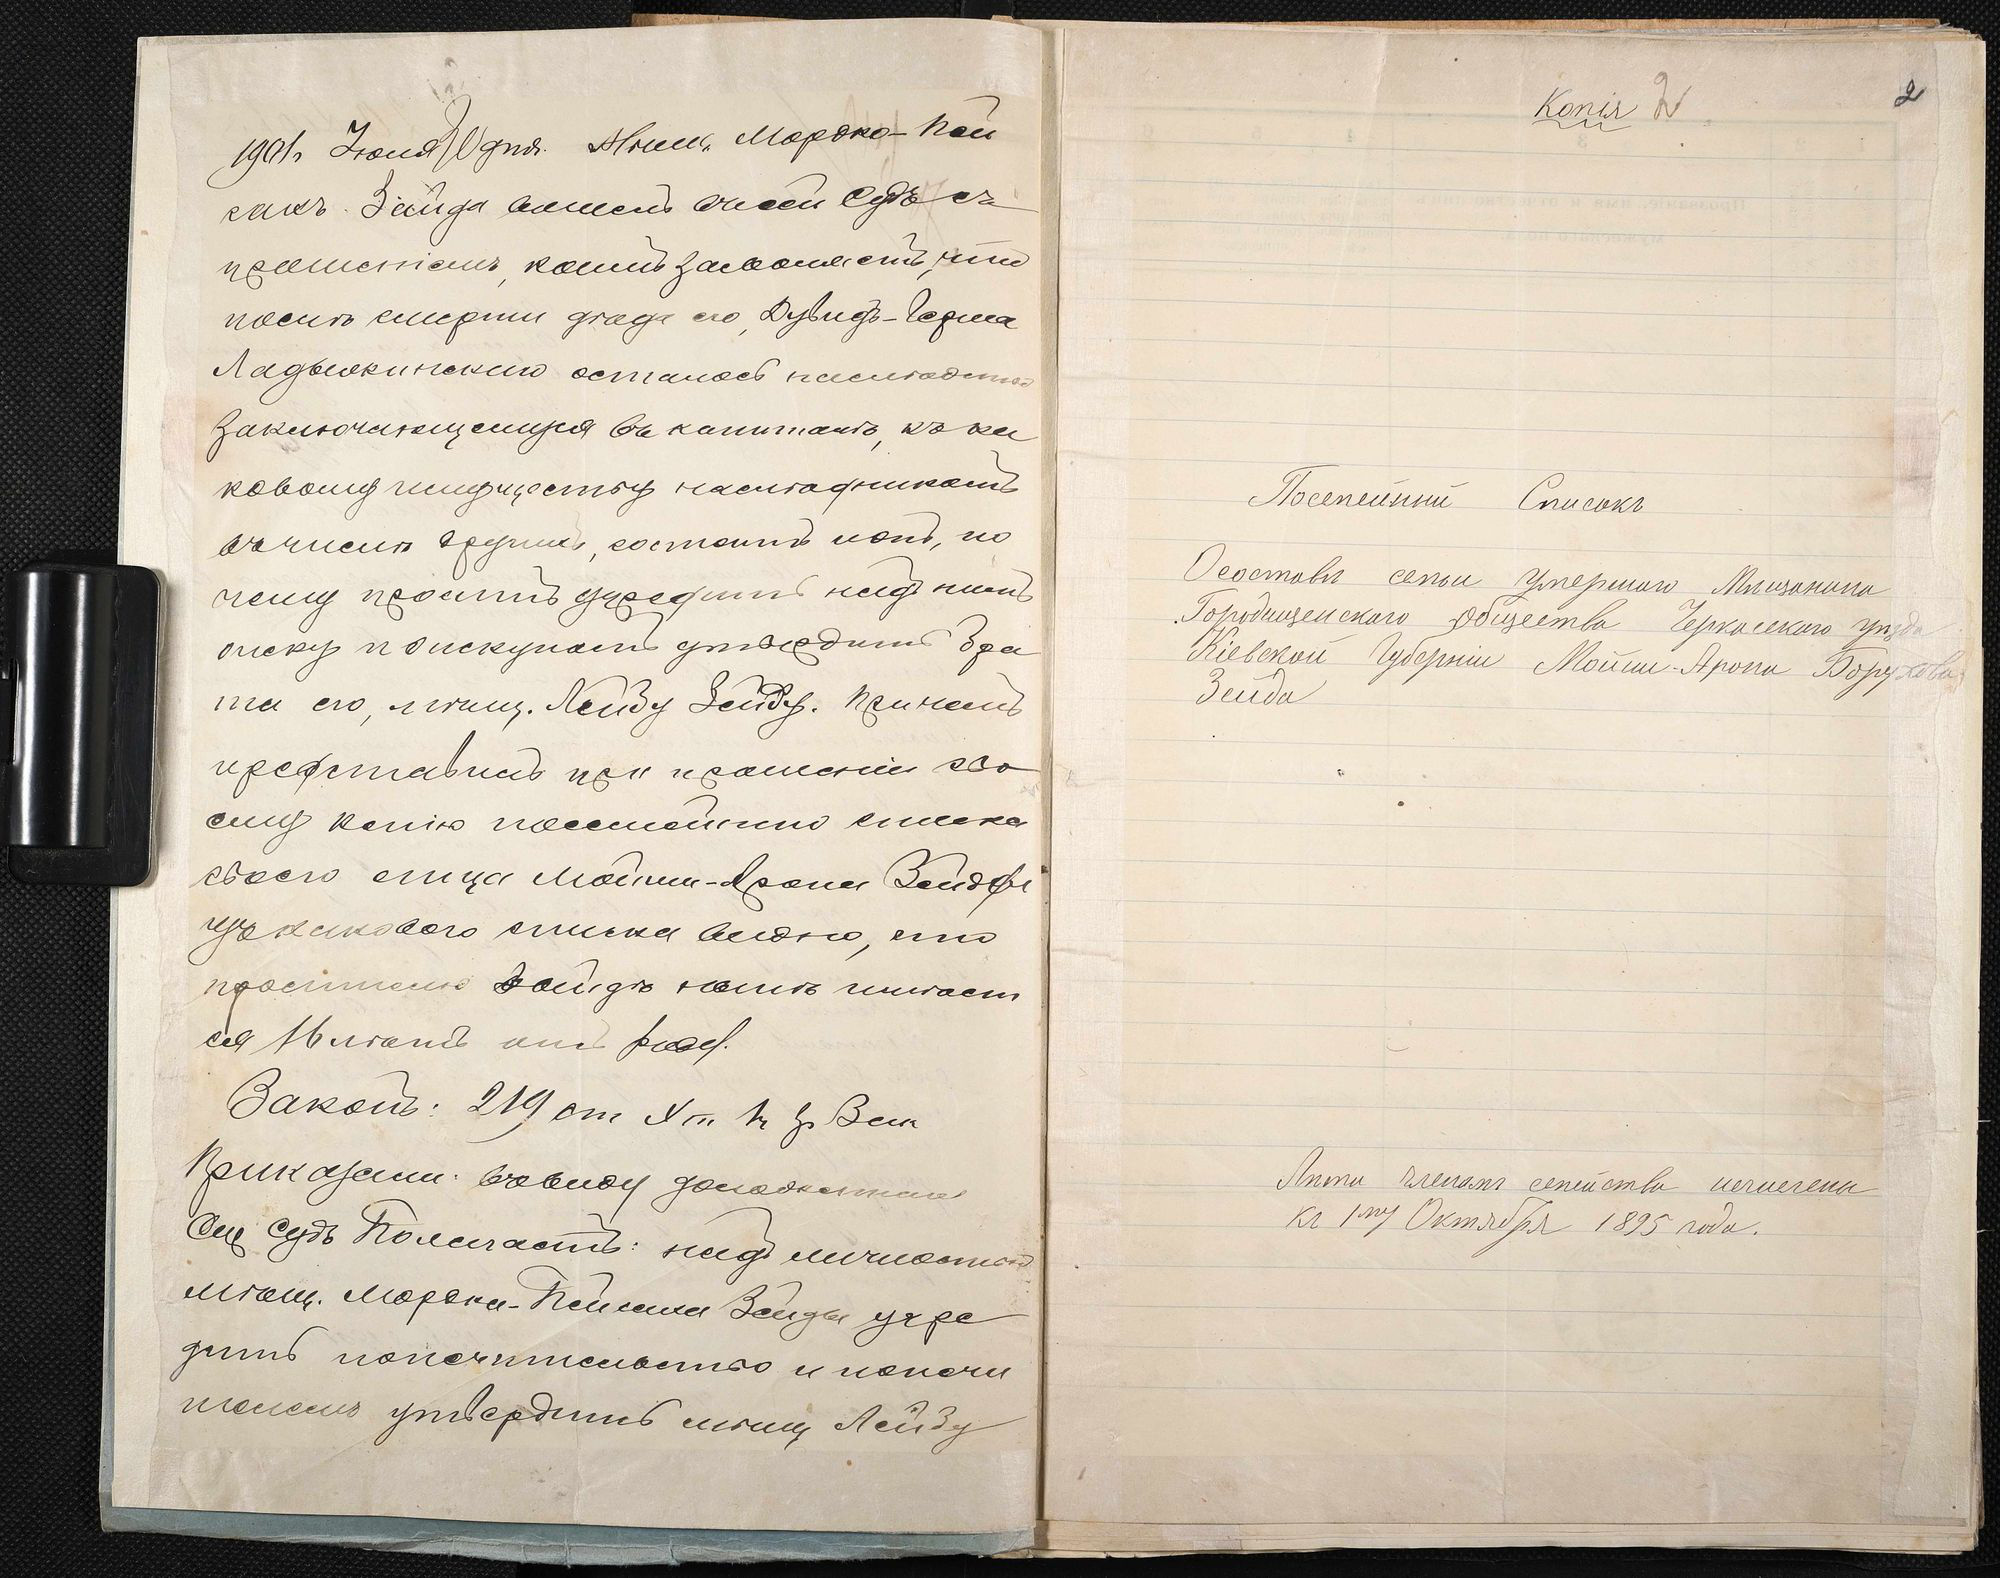 1901 г. Іюля 10 дня. Мѣщ. Мордко-Пей
сахъ Зейда вошелъ въ сей Судъ съ
прошеніемъ, коимъ заявляетъ, что
послѣ смерти дѣда его, Дувидъ-Герша
Ладыжинскаго осталось наслѣдство
заключающееся въ капиталѣ, къ ка
ковому имуществу наслѣдникомъ
въ числѣ другихъ, состоитъ онъ, по
чему проситъ учредить надъ нимъ
опеку и опекуномъ утвердить бра
та его, мѣщ. Лейзу Зейду. Причемъ
представилъ при прошеніи
копію посемейнаго списка
своего отца Мойши-Арона Зейды
изъ каковаго списка видно, что
просителю Зейдѣ нынѣ имѣет
ся 16 лѣтъ отъ род.
Законъ: 219 ст X т. 1 ч
Приказали: въ виду
Сей судъ Полагаетъ: надъ личностью
мѣщ. Мордка-Пейсаха Зейды учре
дить попечительство и попечи
телемъ утвердить мѣщ Лейзу
Копія 2
2
Посемейный Списокъ
О составѣ семьи умершаго Мѣщанина
Городищенскаго Общества Черкасскаго уѣзда
Кіевской Губерніи Мойши-Арона Борухова
Зейда
Лѣта членамъ семейства исчислены
къ 1му Октября 1895 года.